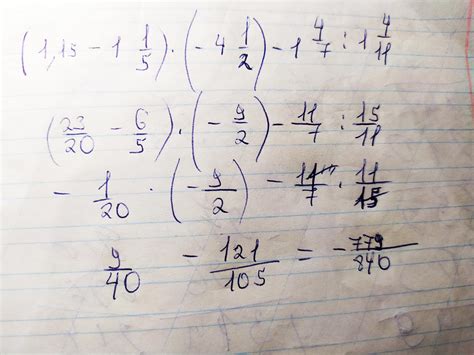 (1,15 - 1 1/5) · (- 4 1/2) - 1 4/7 : 1 4/11
(23/20 - 6/5) · (- 9/2) - 11/7 : 15/11
- 1/20 · (- 9/2) - 11/7 · 11/15
9/40 - 121/105 = - 779/840